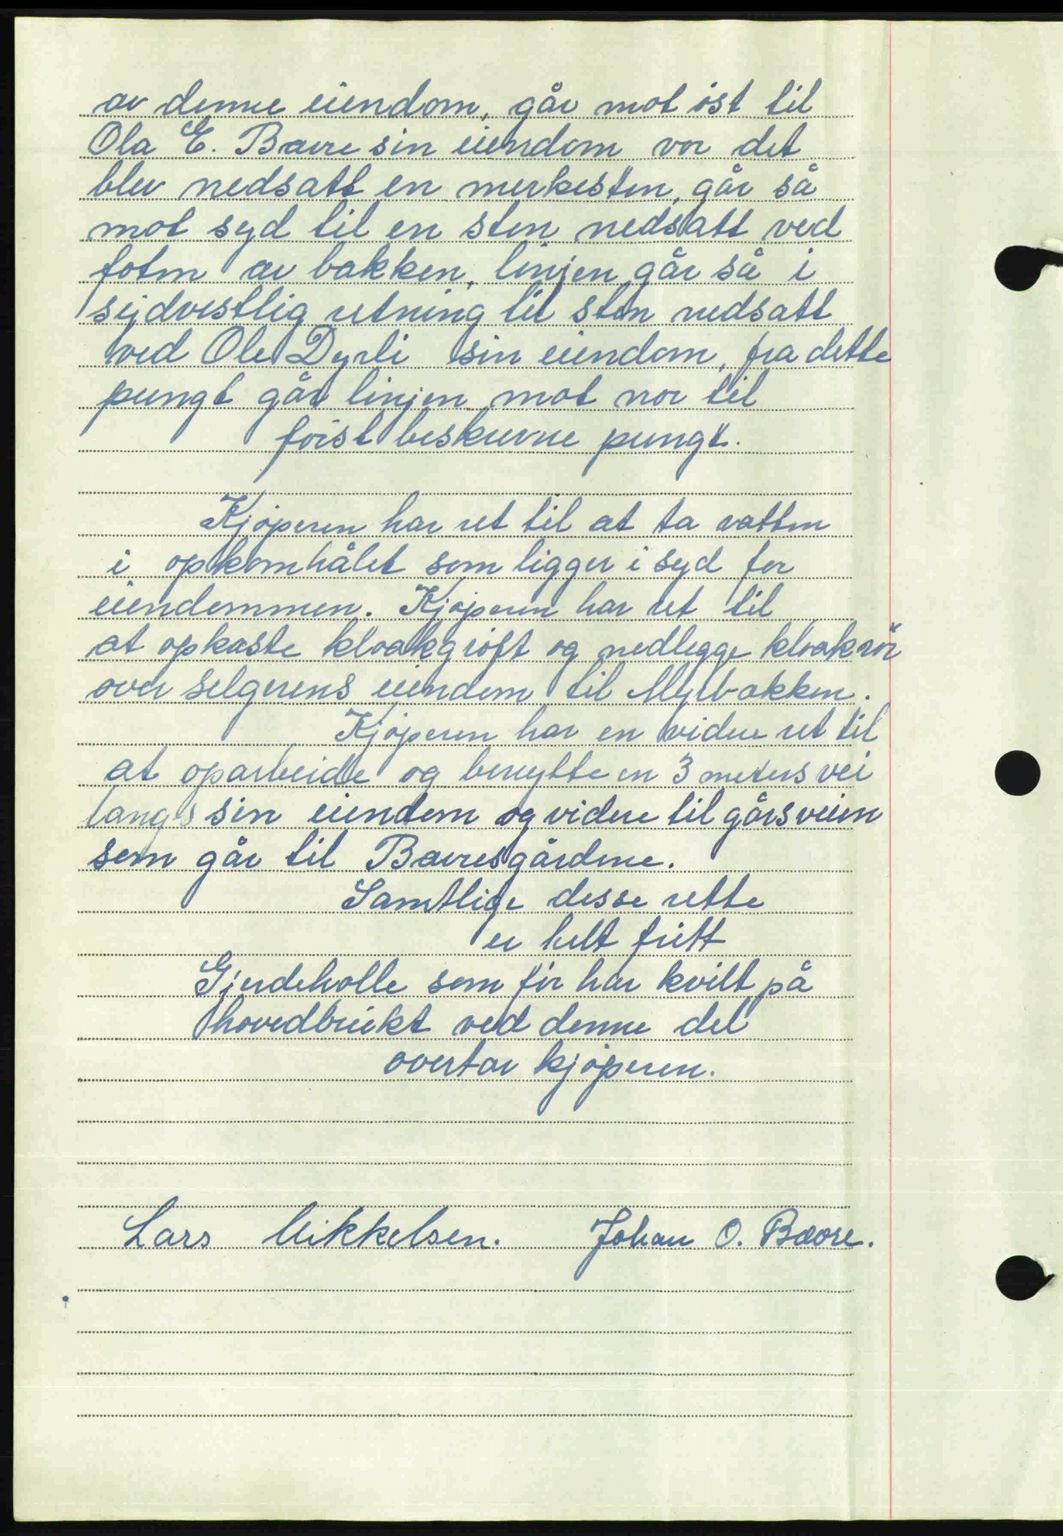 av denne eiendom, går mot øst til
Ola E. Bævre sin eiendom vor det
blev nedsatt en merkesten, går så
mot syd til en sten nedsatt ved
foten av bakken, linjen går så i
sydvestlig retning til sten nedsatt
ved Ole Dyrli sin eiendom, fra dette
pungt går linjen mot nor til
føist beskrevne pungt.
Kjøperen har ret til at ta vatten
i opkomhålet som ligger i syd for
eiendommen. Kjøperen har ret til
at opkaste kloakgrøft og nedlegge kloakrør
over selgerens eiendom til Myrbakken.
Kjøperen har en videre ret til
at oparbeide og benytte en 3 meters vei
langs sin eiendom og videre til gårsveien
som går til Bævresgårdene.
Samtlige desse rette
er helt fritt
Gjerdeholle som før har kvilt på
hovedbruket ved denne del
overtar kjøperen.
Lars Mikkelsen. Johan O. Bævre.